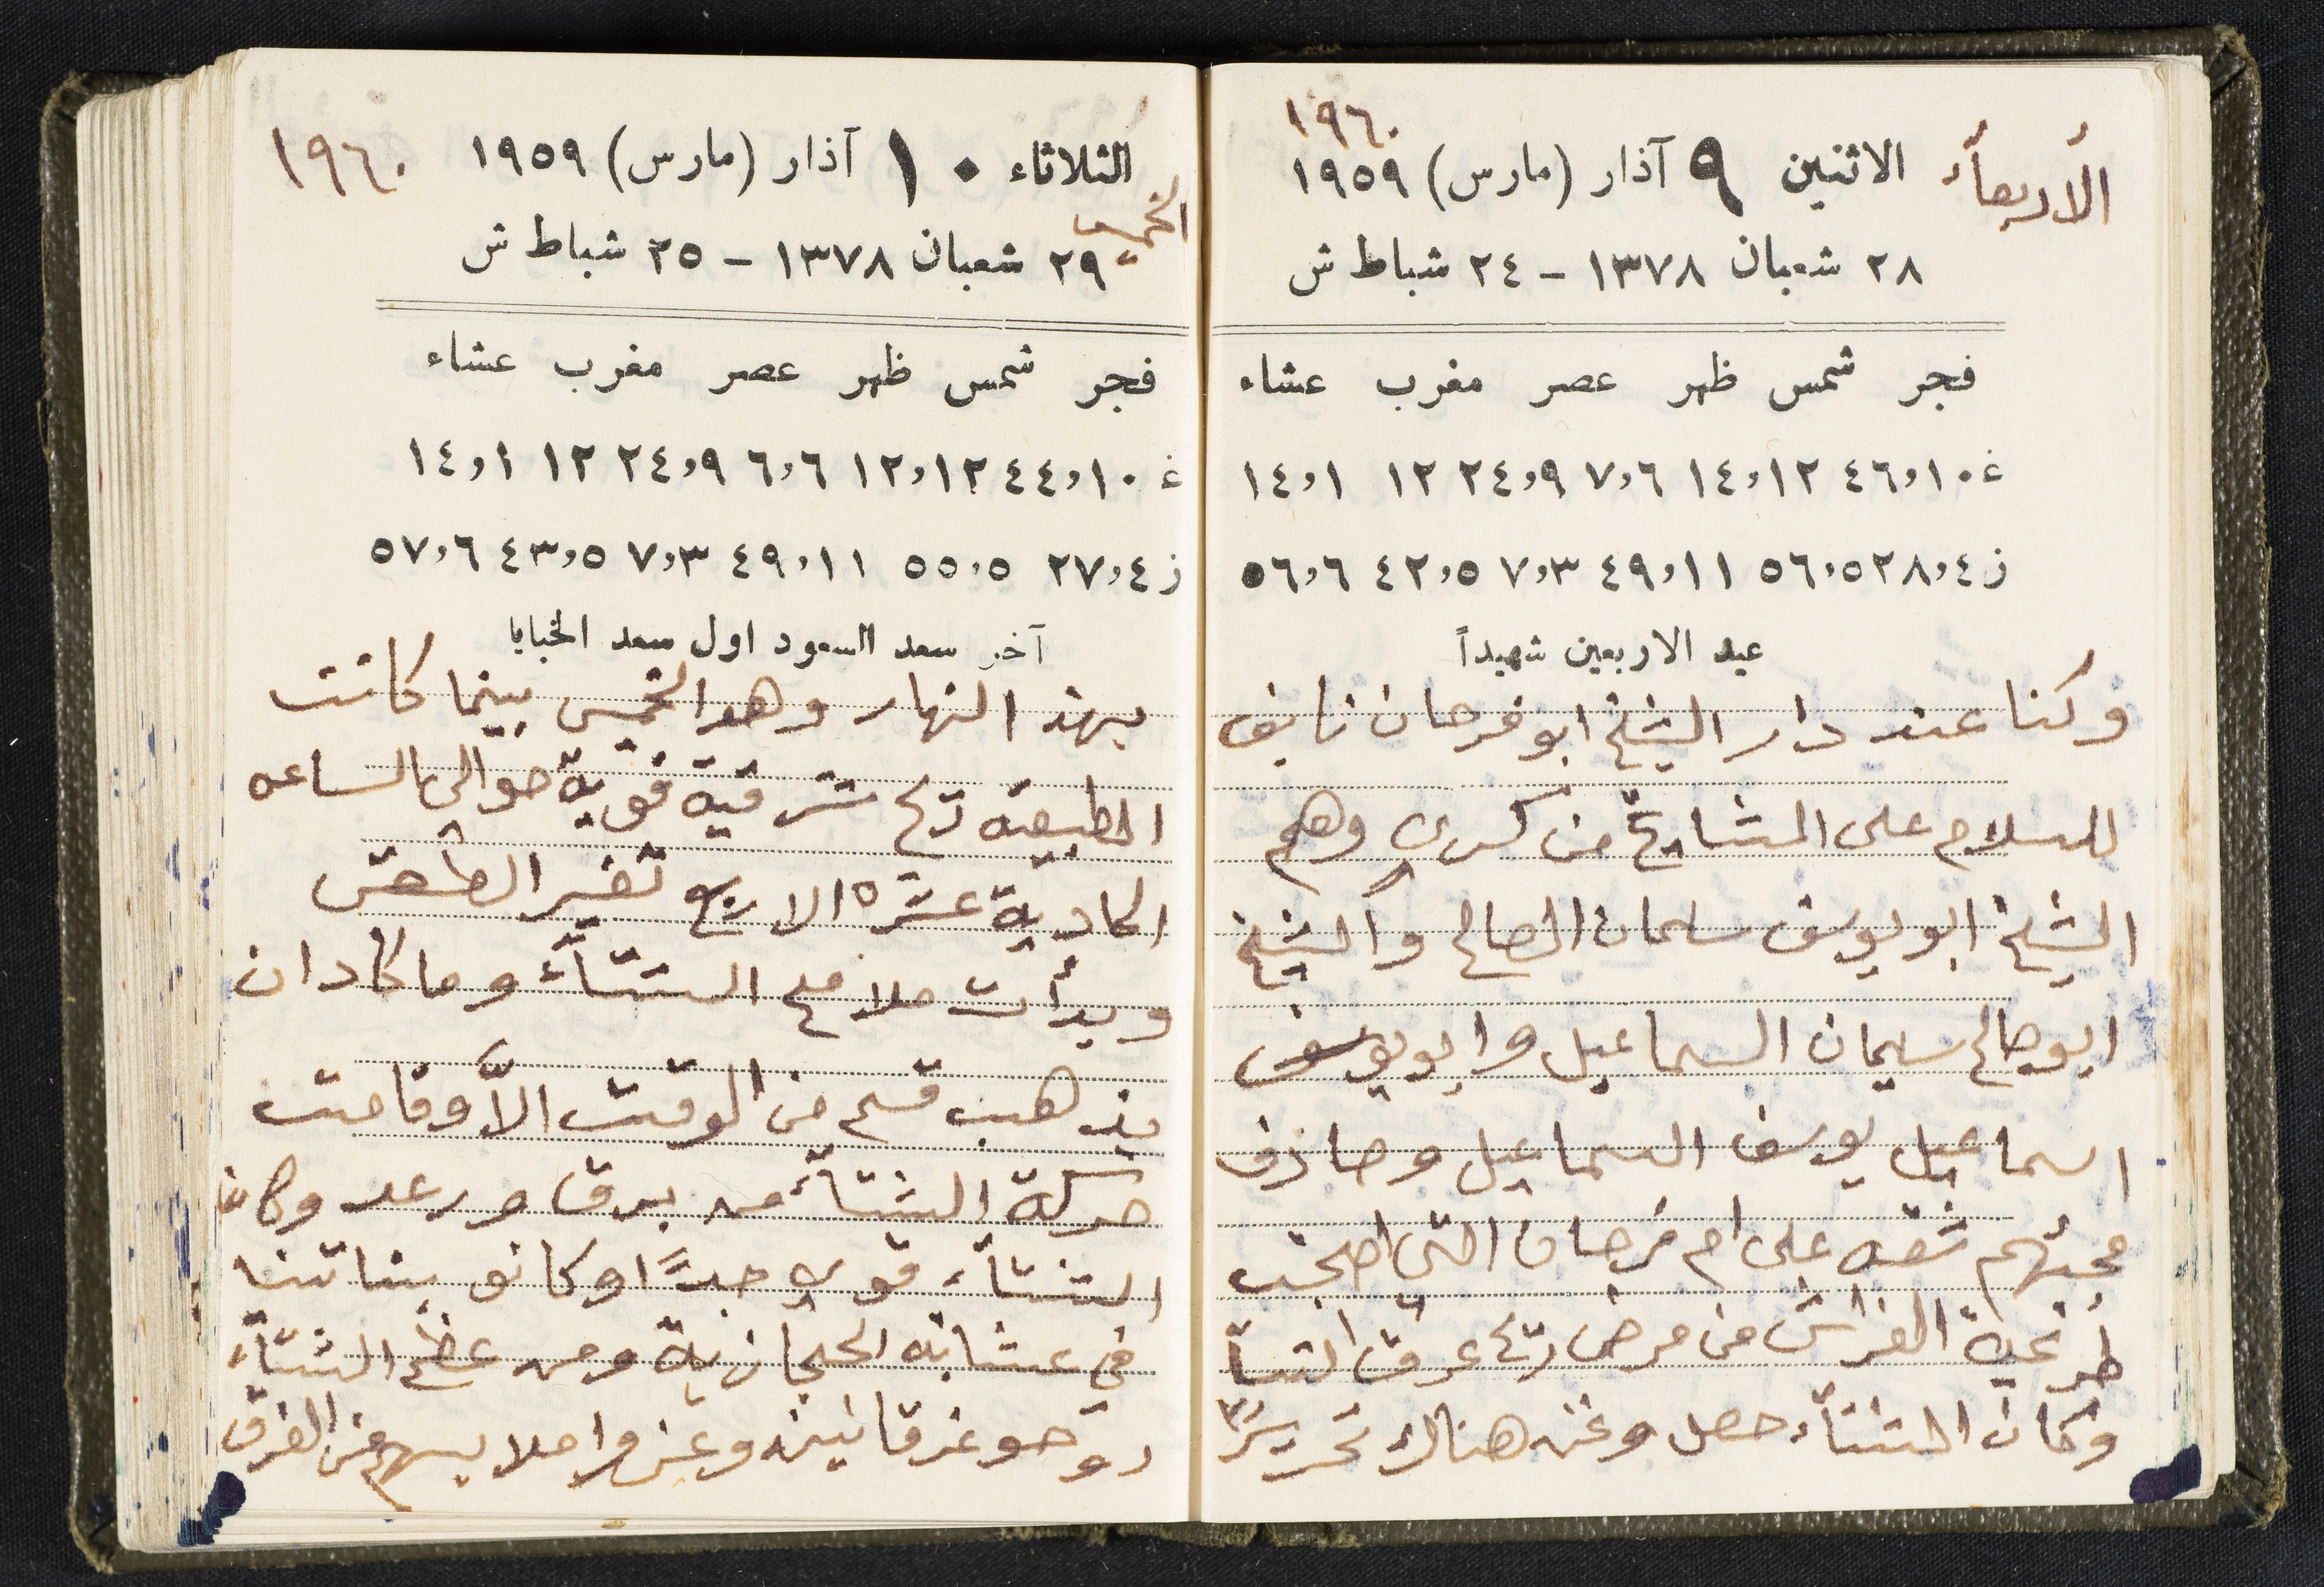 ١٩٦٠
الأربعاء الاثنين ٩ آذار (مارس) ١٩٥٩
٢٨ شعبان ١٣٧٨ - ٢٤ شباط ش
فجر شمس ظهر عصر مغرب عشاء
غ ٤٦,١٠ ١٤,١٢ ٧,٦ ٢٤,٩ ١٢ ١٤,١
ز ٢٨,٤ ٥٦,٥ ٤٩,١١ ٧,٣ ٤٢,٥ ٥٦,٦
عيد الاربعين شهيداً
وكنا عند دار الشيخ ابو فرحان نايف
للسلام على المشايخ من كسرى وهم
الشيخ ابو يوسف سلمان الصالح والشيخ
ابو صالح سليمان السماعيل وابو يوسف
اسماعيل يوسف السماعيل وصادف
مجيئهم شقه على ام فرحان التي اصبحت
طريحة الفراش من مرض ريح عرق النسا
وكان الشتاء حصل ونحن هناك
الثلاثاء ١٠ آذار (مارس) ١٩٥٩ ١٩٦٠
الخميس
٢٩ شعبان ١٣٧٨ - ٢٥ شباط ش
فجر شمس ظهر عصر مغرب عشاء
غ ٤٤,١٠ ١٢,١٢ ٦,٦ ٢٤,٩ ١٢ ١٤,١
ز ٢٧,٤ ٥٥,٥ ٤٩,١١ ٧,٣ ٤٣,٥ ٥٧,٦
آخر سعد السعود اول سعد الخبايا
بهذ النهار وهو الخميس بينما كانت
الطبيعه ريح شرقية قوية حوالي الساعه
الحادية عشره الا ربع تغير الطقس
وبدأت ملامح الشتاء وما كاد ان
يذهب قسم من الوقت الاّ وقامت
حركة الشتاء من برق ورعد وكان
الشتاء قوي جدًا وكانو بناتنا
في الحجازية ومن عظم الشتاء
روحو غرقانين وغيروا ملابسهم من الغرق